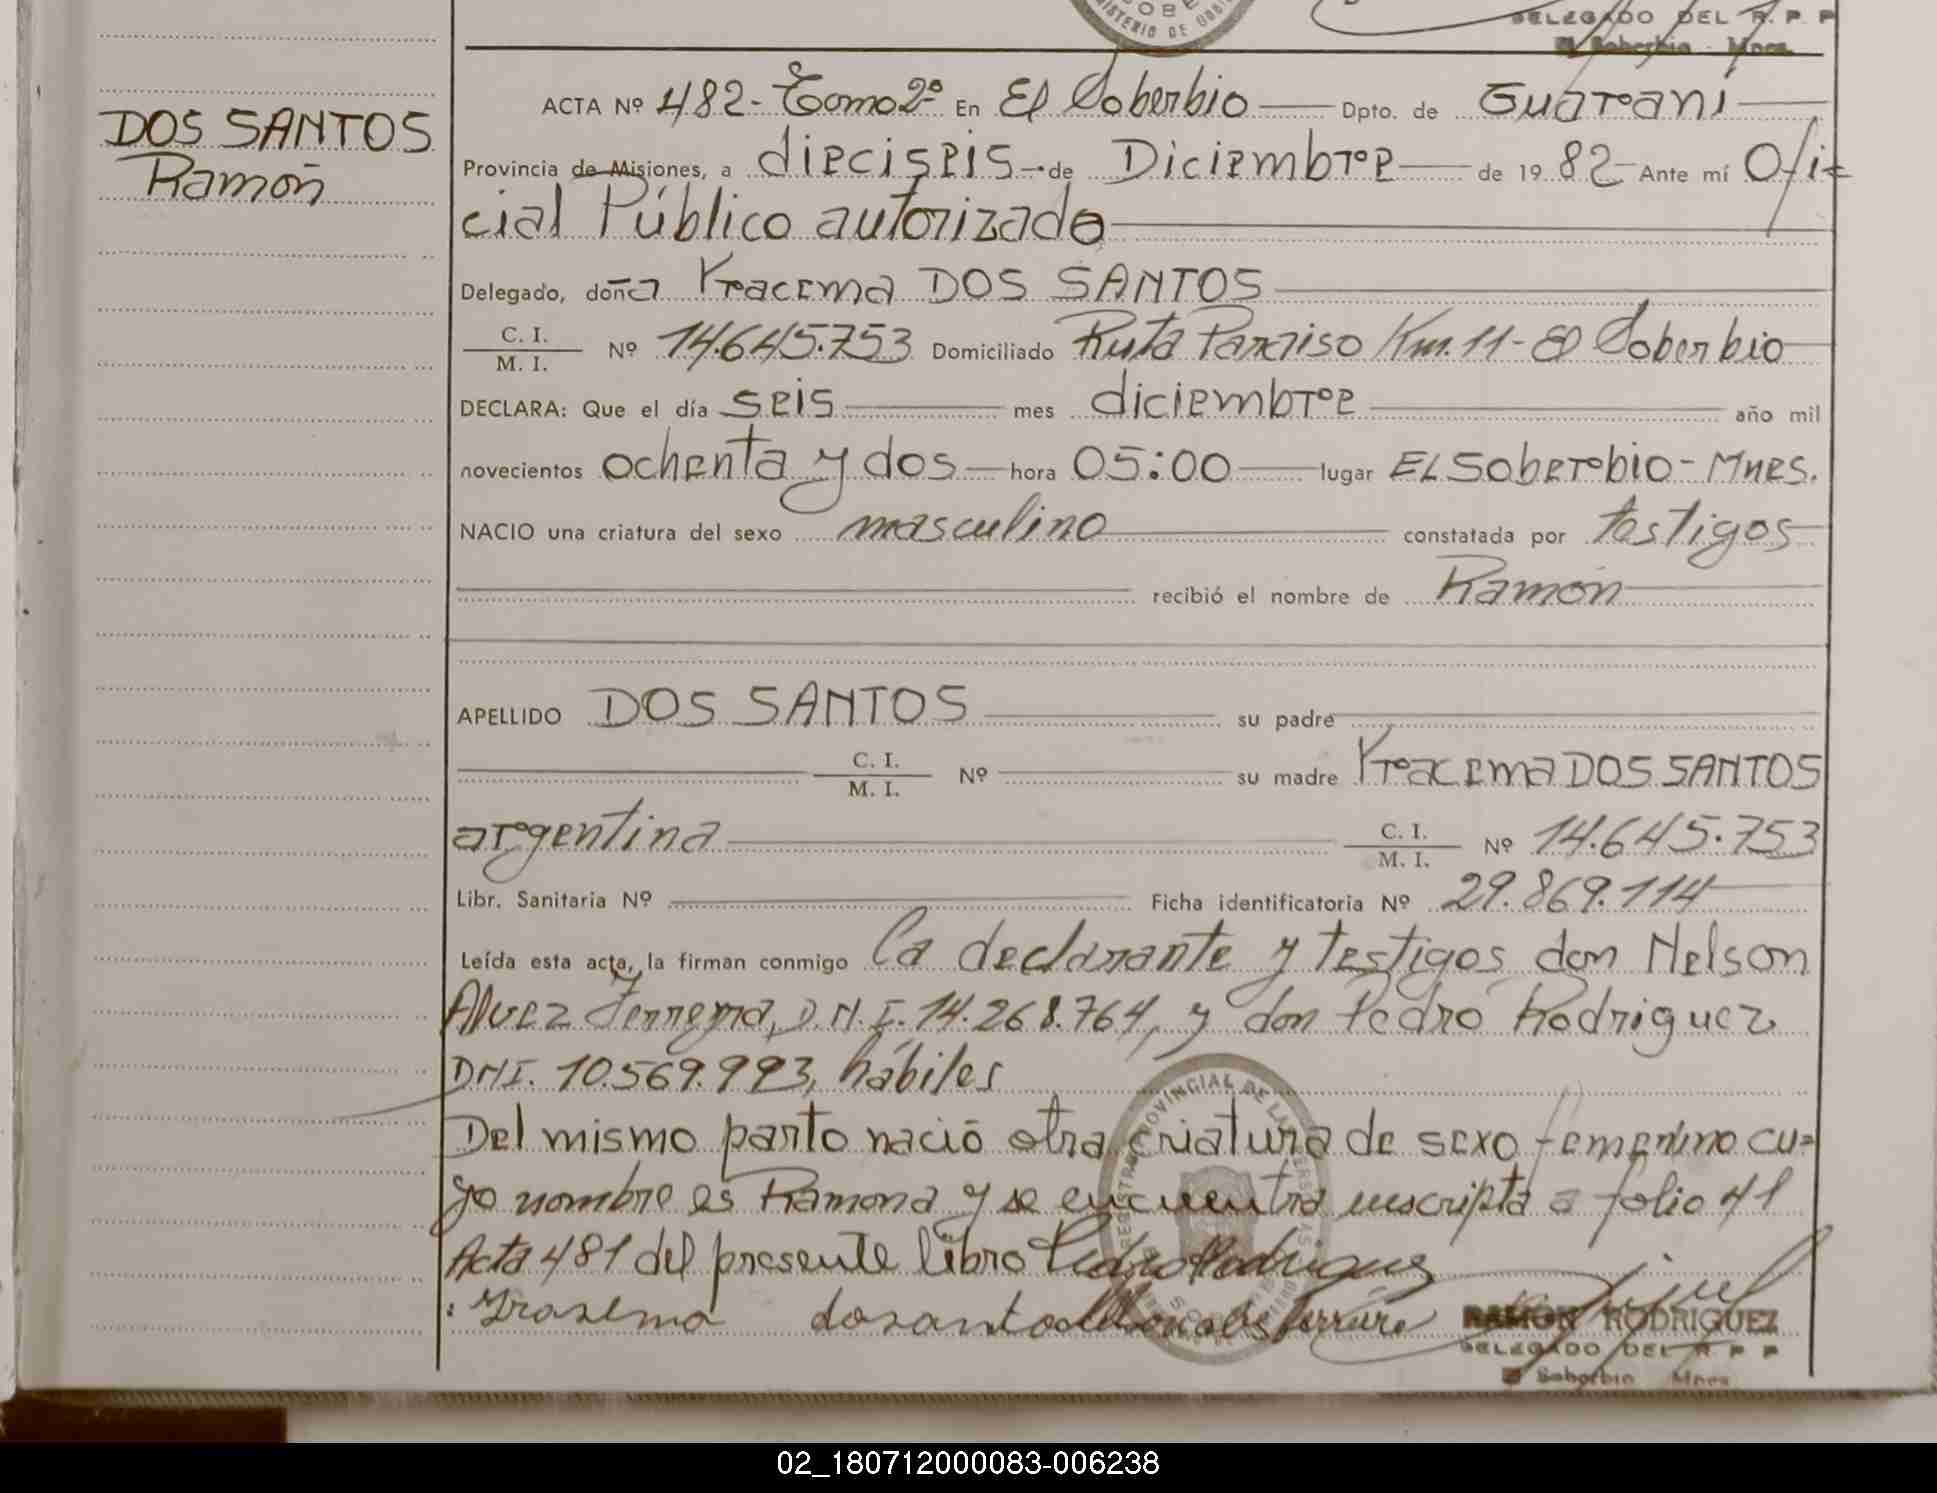 SOBE
MINISTERIO DE GOBI
DELEGADO DEL R. P. P
El Soberbio - Mnes.
DOS SANTOS
Ramón
ACTA Nº 482- Tomo 2º En El Soberbio Dpto. de Guaraní
Provincia de Misiones, a dieciseis de Diciembre de 1982 Ante mí Ofi=
cial Público autorizado
Delegado, doña Yracema DOS SANTOS
C. I.
M. I. Nº 14.645.753 Domiciliado Ruta Paraiso Km. 11 - El Soberbio
DECLARA: Que el día seis mes diciembre año mil
novecientos ochenta y dos hora 05:00 lugar EL Soberbio - Mnes.
NACIO una criatura del sexo masculino constatada por testigos
recibió el nombre de Ramón
APELLIDO DOS SANTOS su padre
C. I.
M. I. Nº su madre Yracema DOS SANTOS
argentina C. I.
M. I. Nº 14.645.753
Libr. Sanitaria Nº Ficha identificatoria Nº 29.869.114
Leída esta acta, la firman conmigo La declarante y testigos don Nelson
Alvez Ferreyra, D.N.I. 14.268.764, y don Pedro Rodriguez
DNI. 10.569.993, hábiles
Del mismo parto nació otra criatura de sexo femenino cu=
yo nombre es Ramona y se encuentra inscripta a folio 41
Acta 481 del presente libro Pedro Rodriguez
Yrasema dosantos
RAMON RODRIGUEZ
DELEGADO DEL R P P
El Soberbio Mnes
02_180712000083-006238